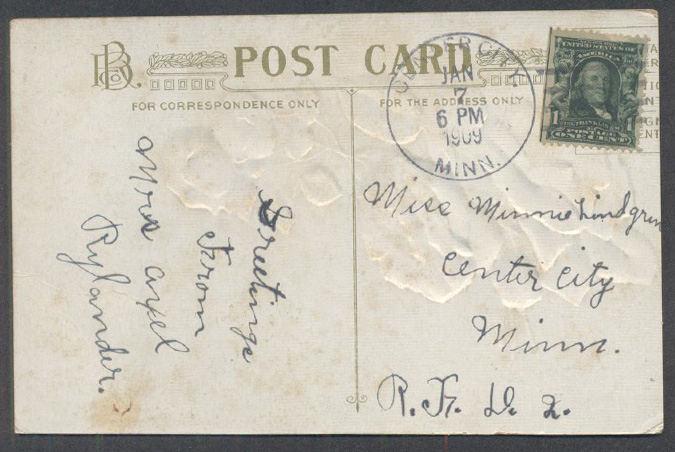 POST CARD
FOR CORRESPONDENCE ONLY
FOR THE ADDRESS ONLY
CENTER CITY
JAN
7
6 PM
1909
MINN.
UNITED STATES OF
AMERICA
1 1
POSTAGE
ONE CENT
Greetings
From
Mrs Axel
Rylander.
Miss Minnie Lindgren
Center City
Minn.
R. F. D. 2.